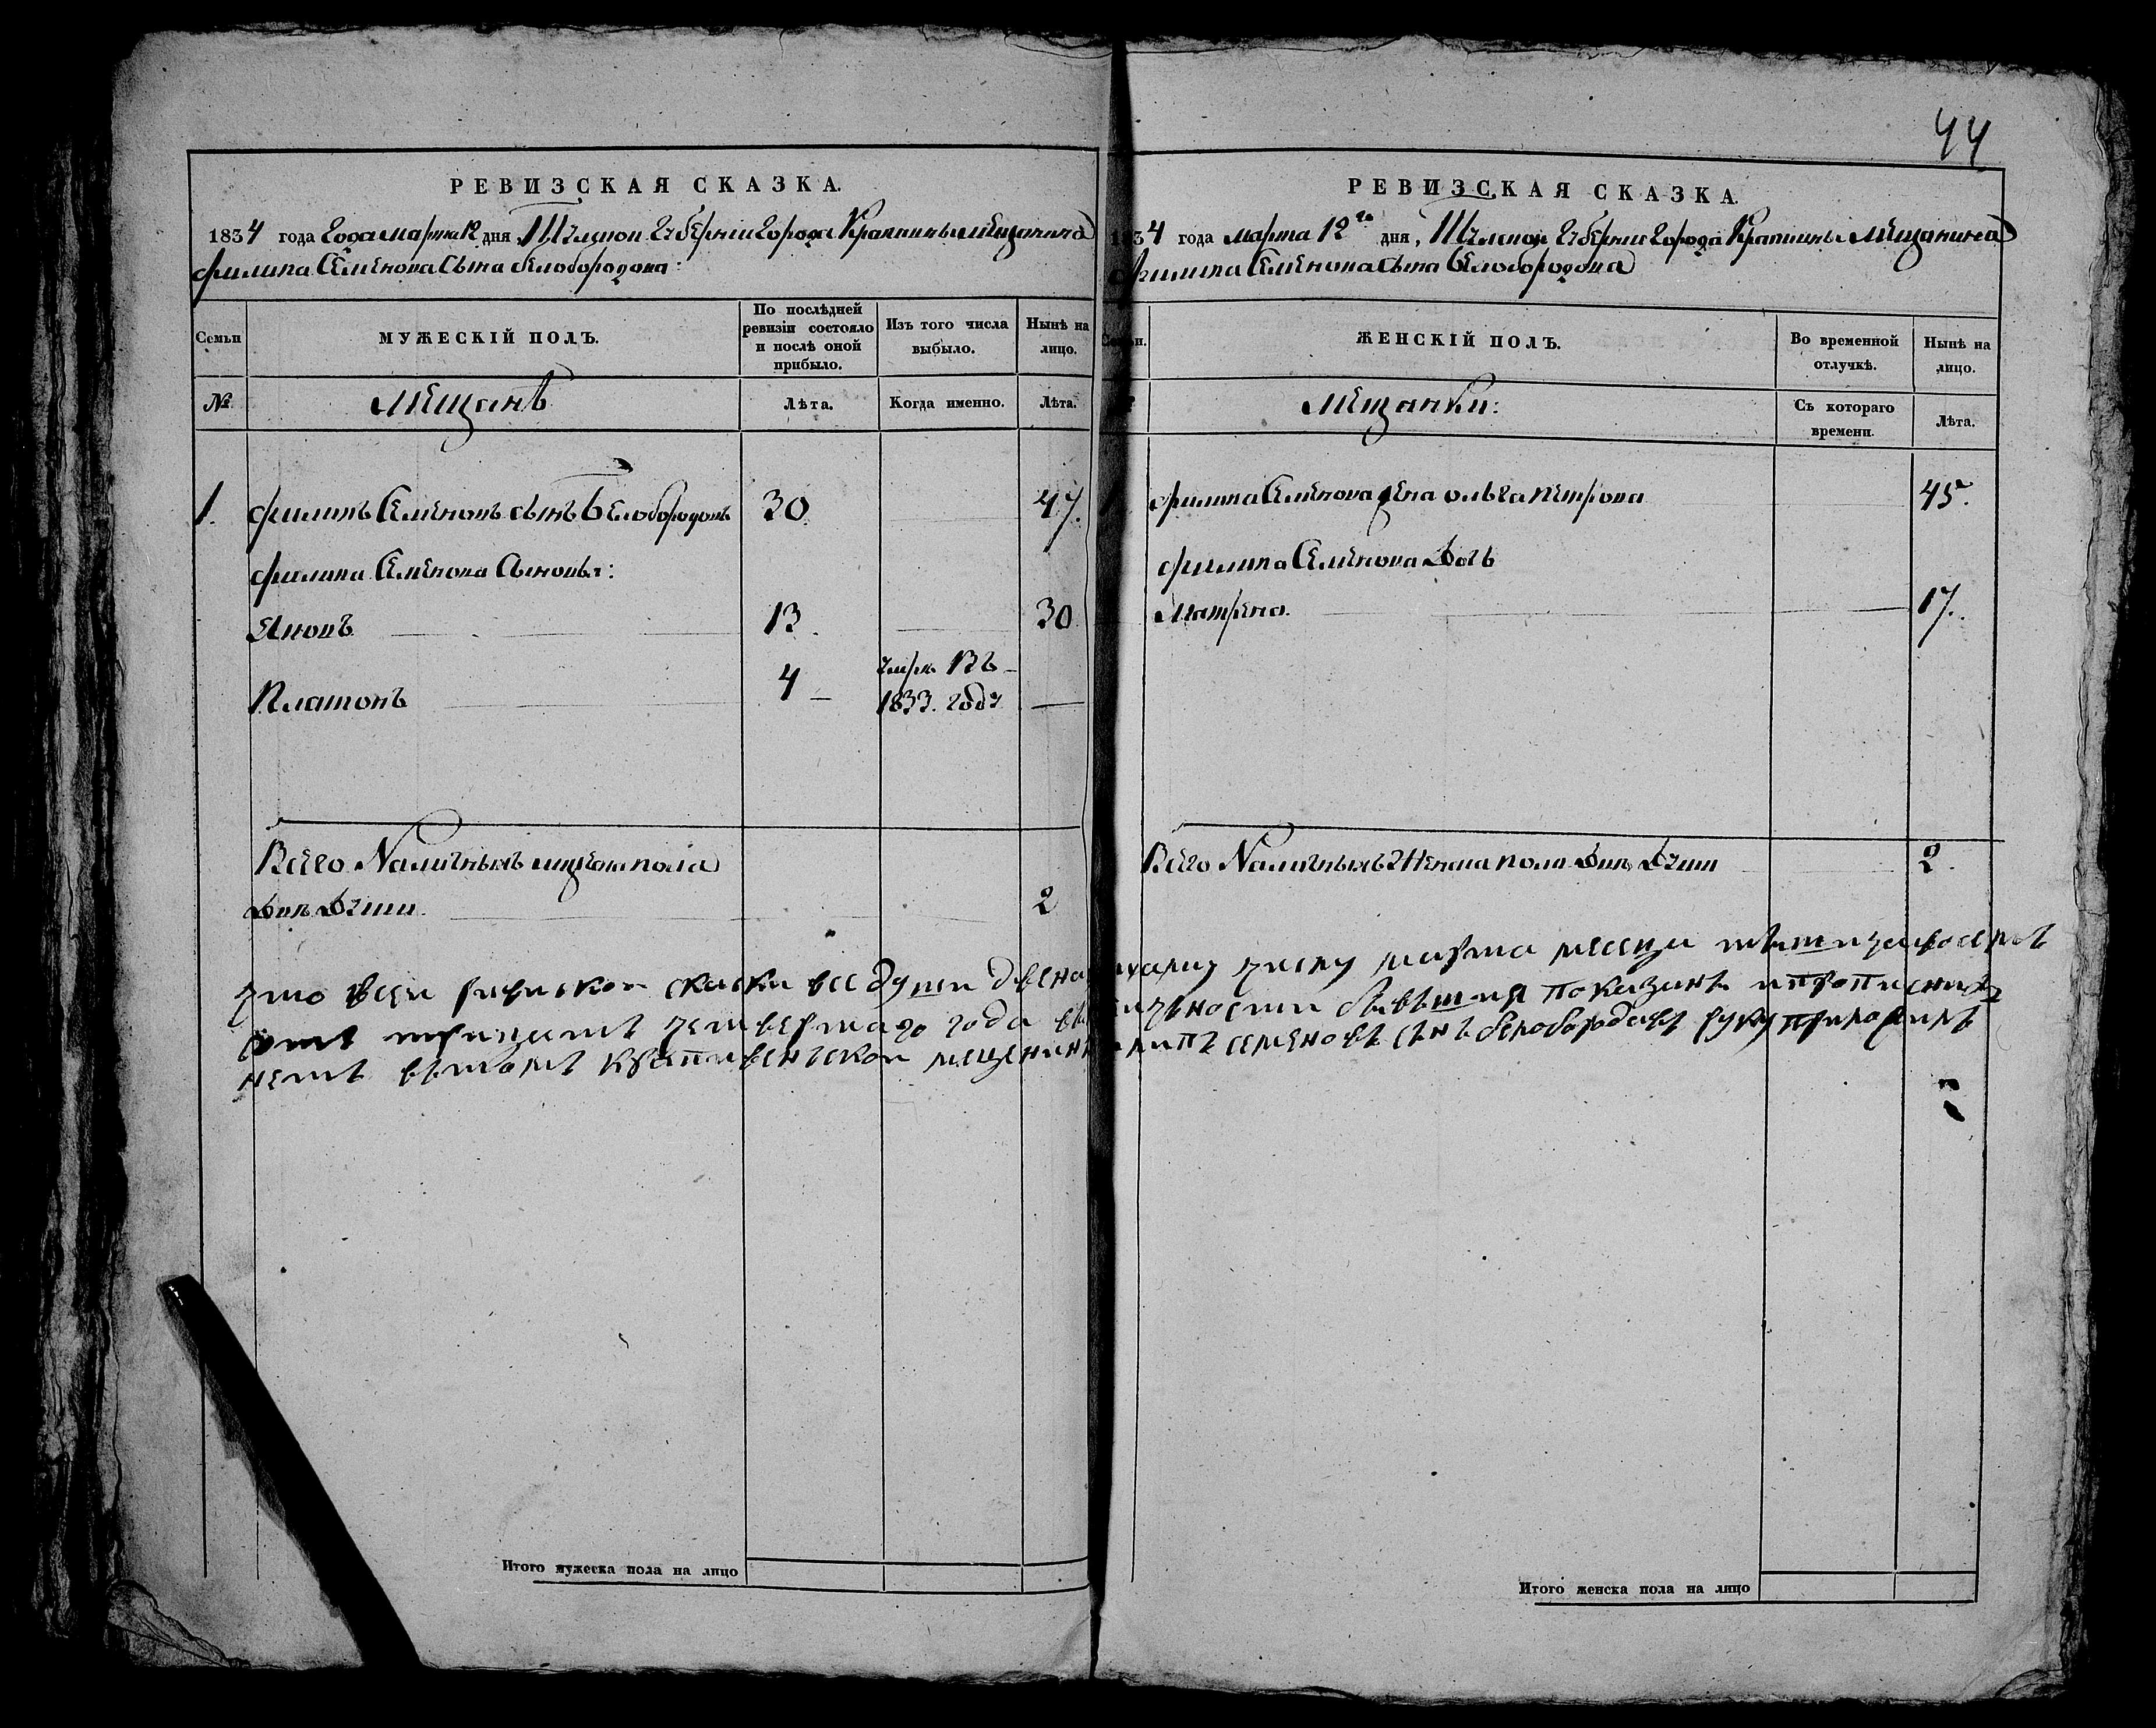 44
РЕВИЗСКАЯ СКАЗКА.
1834 года года марта 12 дня, Тульской Губернии Города Крапивны мещанина
филипа Семенова Сына белобородова:
Семьи
МУЖЕСКІЙ ПОЛЪ.
По послѣдней ревизіи состояло и послѣ оной прибыло.
Изъ того числа выбыло.
Нынѣ на лицо.
№
Мещанѣ
Лѣта.
Когда именно.
Лѣта.
1. филипъ Семеновъ сынъ Белобородовъ 30 47.
филипа Семенова Сыновья:
Яковъ 13. 30
Платонъ 4 умре въ 1833. году
Всего Наличныхъ мужеска пола
Двѣ Души 2
РЕВИЗСКАЯ СКАЗКА.
1834 года марта 12го дня, Тульской Губернии Города Крапивны Мещанина
филипа Семенова сына Белобородова
Семьи.
ЖЕНСКІЙ ПОЛЪ.
Во временной отлучкѣ.
Нынѣ на лицо.
№
Мещанки:
Съ котораго времени.
Лѣта.
филипа Семенова жена ольга петрова 45.
филипа Семенова Дочь
Матрена. 17.
Всего Наличныхъ женска пола Двѣ Души 2.
что всеи ревиской скаски все души двенацатому числу марта месеца тысяща восемъ
сотъ трицатъ четвертаго года въ личъности бывъшия показанъ ипрописнихъ
нетъ вътомъ крапивенъской мещенинъ филипъ семеновъ сынъ белобородовъ руку приложилъ
Итого мужеска пола на лицо
Итого женска пола на лицо